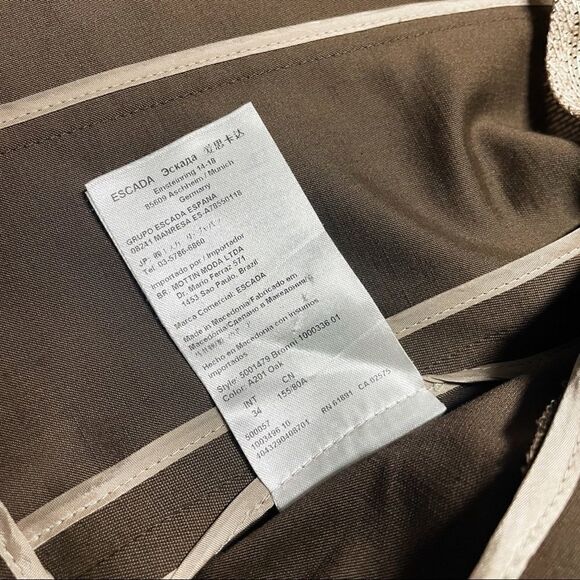 ESCADA Эскада 爱思卡达
Einsteinring 14-18
85609 Aschheim / Munich
Germany
GRUPO ESCADA ESPANA
08241 MANRESA ES-A78550118
JP:
Tel. 03-5786-6860
Importado por / Importador
BR: MOTTIN MODA LTDA
Dr. Mario Ferraz 571
1453 Sao Paulo, Brazil
Marca Comercial: ESCADA
Made in Macedonia/Fabricado em
Macedonia/Сделано в Македонии/
Hecho en Macedonia con insumos
importados
Style: 5001479 Bronni 1000336 01
Color: A201 Oak
INT CN
34 155/80A
500057 RN 61891 CA 02575
1003496 10
4043290408701